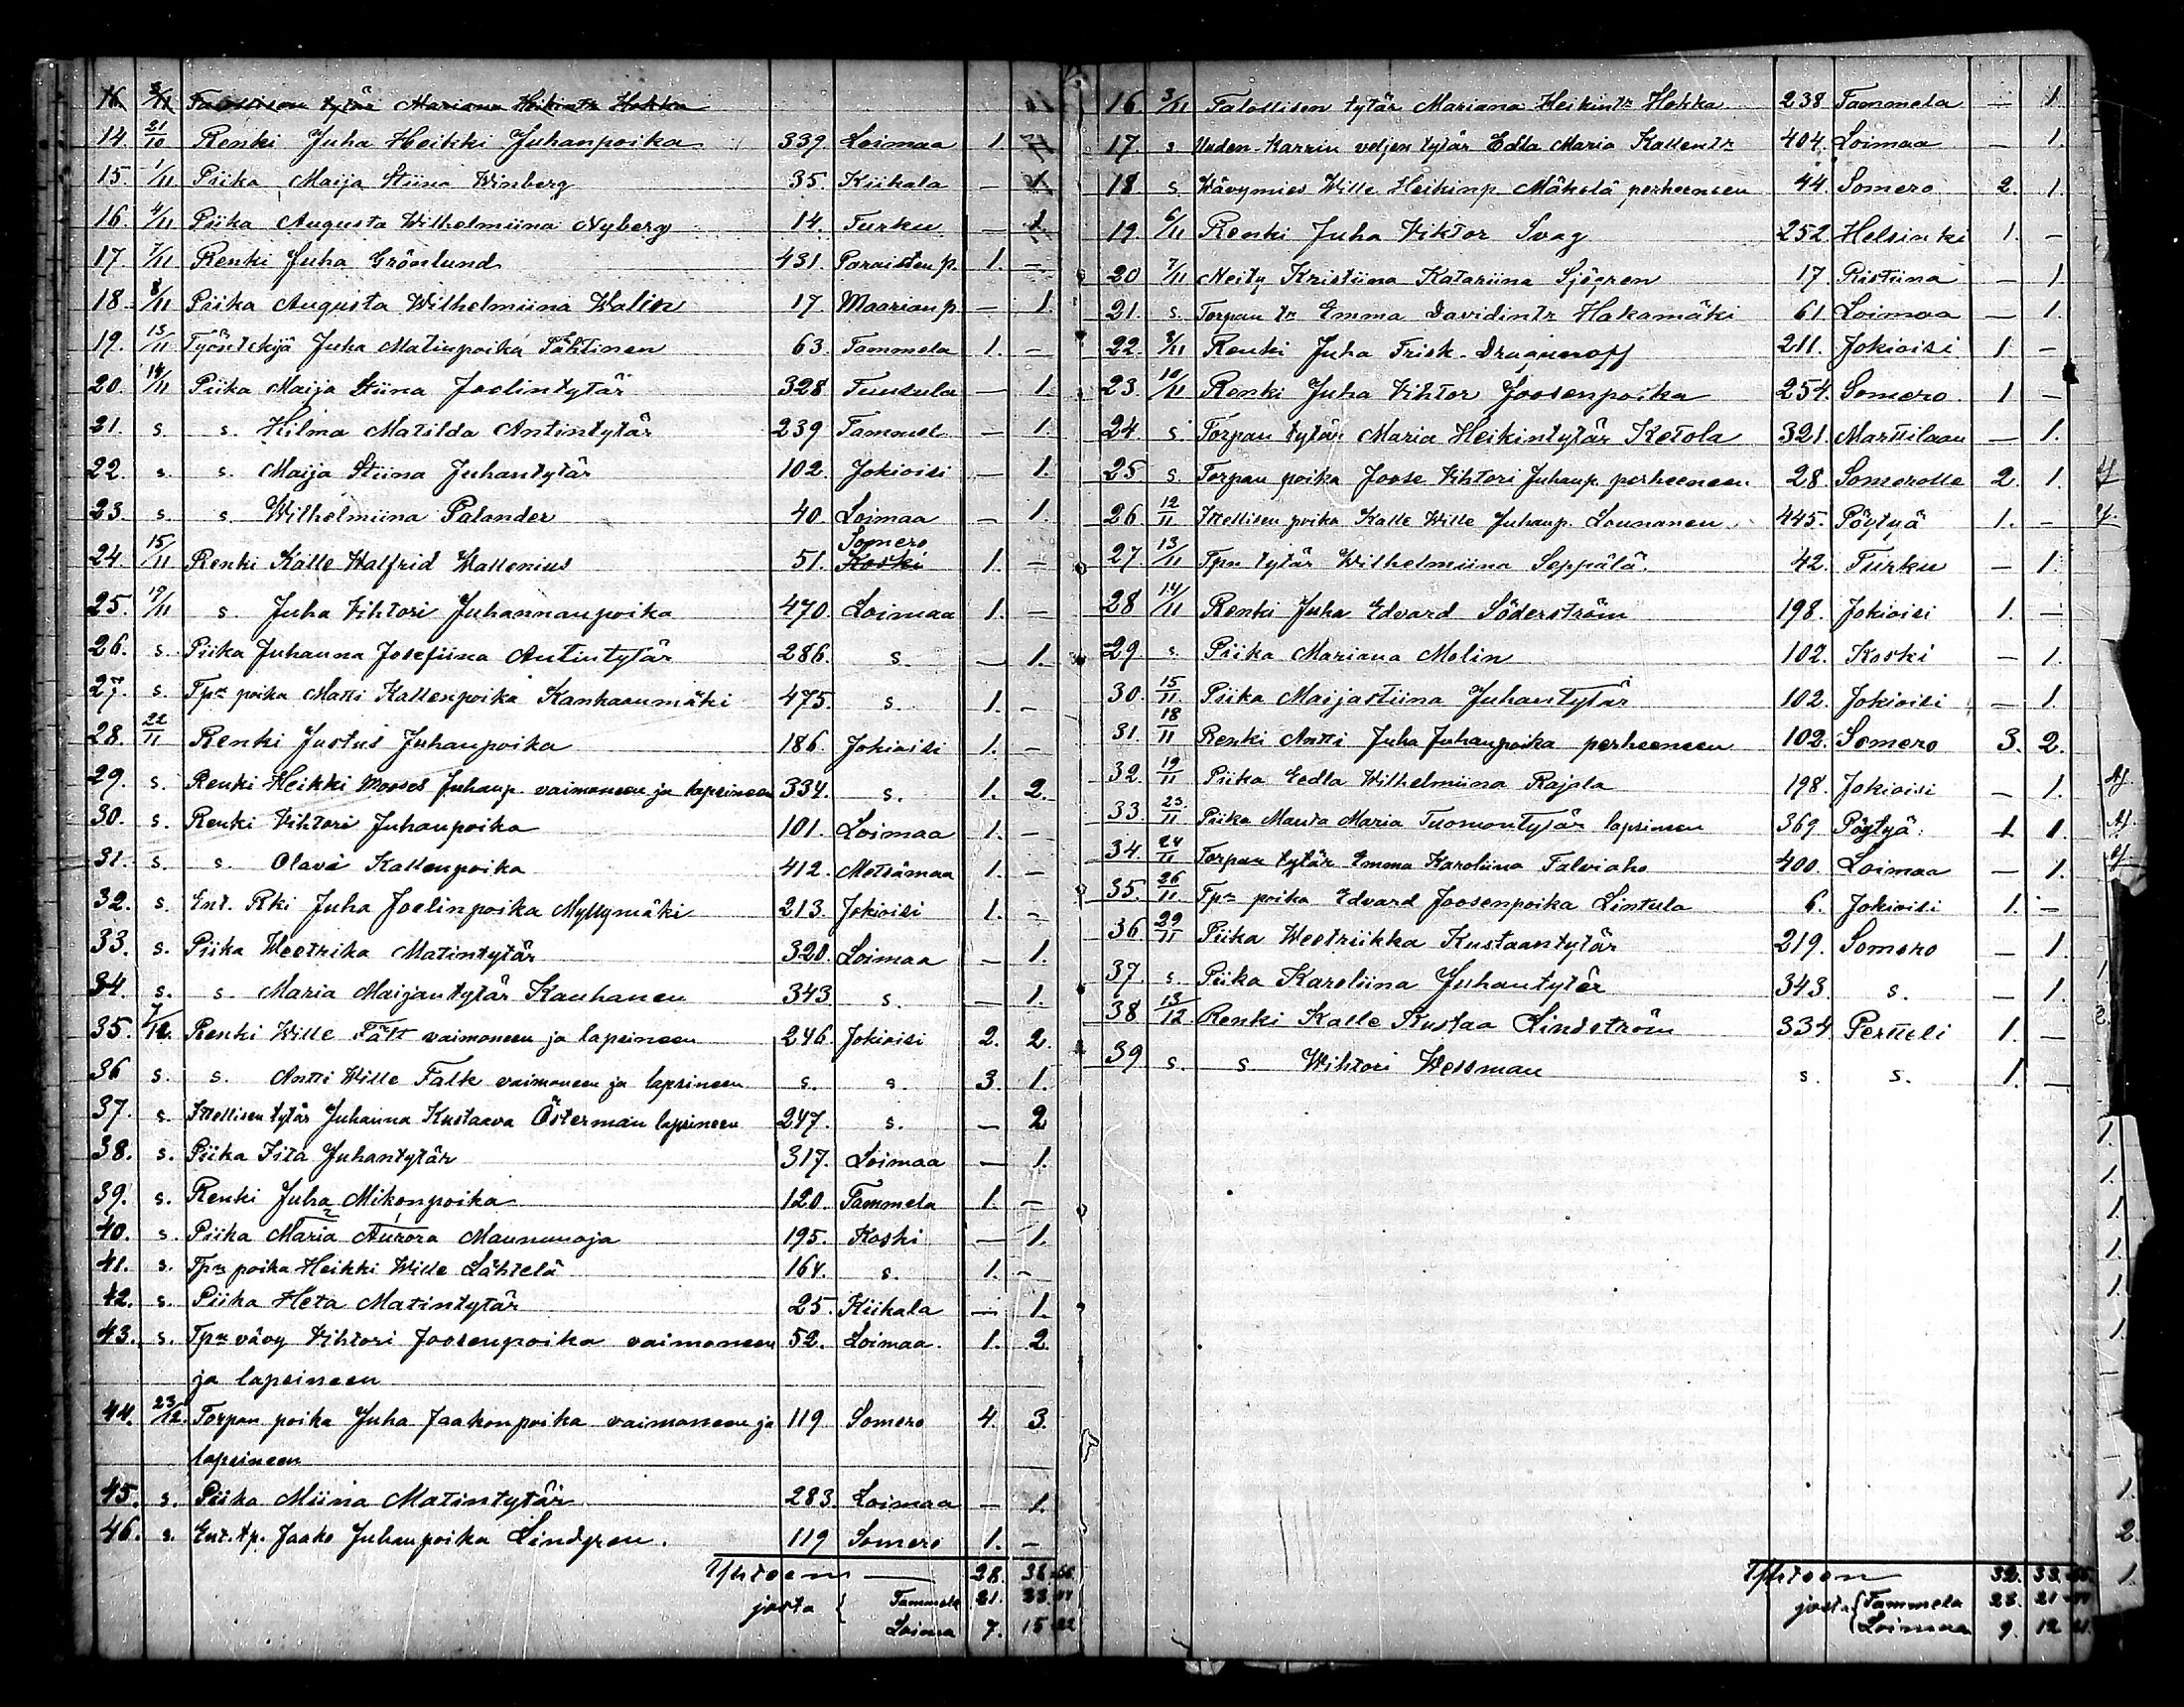 16. 3/11 Talollisen tytär Mariana Heikintr Hokka
14. 21/10 Renki Juha Heikki Juhanpoika 339 Loimaa 1. —
15. 1/11 Piika Maija Stiina Winberg 35. Kiikala — 1.
16. 4/11 Piika Augusta Wilhelmiina Nyberg 14. Turku — 1.
17. 7/11 Renki Juha Grönlund 431. Paraisten p. 1. —
18. 8/11 Piika Augusta Wilhelmiina Walin 17. Maarian p. — 1.
19. 13/11 Työntekijä Juha Matinpoika Tähtinen 63. Tammela 1. —
20. 14/11 Piika Maija Stiina Joelintytär 328 Tuusula — 1.
21. s. s. Hilma Matilda Antintytär 239 Tammel. — 1.
22. s. s. Maija Stiina Juhantytär 102. Jokioisi — 1.
23. s. s. Wilhelmiina Palander 40. Loimaa — 1.
24. 15/11 Renki Kalle Walfrid Wallenius 51. Koski Somero 1. —
25. 19/11 s. Juha Vihtori Juhannanpoika 470. Loimaa 1. —
26. s. Piika Juhanna Josefiina Antintytär 286. s. — 1.
27. s. Tpn poika Matti Kallenpoika Kanhaanmäki 475. s. 1. —
28. 22/11 Renki Justus Juhanpoika 186. Jokioisi 1. —
29. s. Renki Heikki Mooses Juhanp. vaimoneen ja lapsineen 334. s. 1. 2.
30. s. Renki Vihtori Juhanpoika 101. Loimaa 1. —
31. s. s. Olavi Kallenpoika 412. Metsämaa 1. —
32. s. Ent. Rki Juha Joelinpoika Myllymäki 213. Jokioisi 1. —
33. s. Piika Weetrika Matintytär 320. Loimaa — 1.
34. s. s. Maria Maijantytär Kauhanen 343. s. — 1.
35. 7/12. Renki Wille Fält vaimoneen ja lapsineen 246. Jokioisi 2. 2.
36 s. s. Antti Wille Falk vaimoneen ja lapsineen s. s. 3. 1.
37. s. Itellisen tytär Juhanna Kustaava Österman lapsineen 247. s. — 2
38. s. Piika Iita Juhantytär 317. Loimaa — 1.
39. s. Renki Juha Mikonpoika 120. Tammela 1. —
40. s. Piika Maria Aurora Maununoja 195. Koski — 1.
41. s. Tpn poika Heikki Wille Lähtelä 164. s. 1. —
42. s. Piika Heta Matintytär 25. Kiikala — 1.
43. s. Tpn vävy Vihtori Joosenpoika vaimoneen 52. Loimaa. 1. 2.
ja lapsineen
44. 23/12. Torpan poika Juha Jaakonpoika vaimoneen ja 119 Somero 4. 3.
lapsineen
45. s. Piika Miina Matintytär 283. Loimaa — 1.
46. s. Ent. tp. Jaako Juhanpoika Lindgren. 119 Somero 1. —
Yhteensä — 28. 38
josta { Tammela 21. 23
Loimaa 7. 15
16. 3/11 Talollisen tytär Mariana Heikintr Hokka 238 Tammela — 1.
17. s Uuden-Karrin veljen tytär Edla Maria Kallentr 404. Loimaa — 1.
18. s. Wävymies Wille Heikinp. Mäkelä perheeneen 44. Somero 2. 1.
19. 6/11 Renki Juha Viktor Svag 252 Helsinki 1. —
20 7/11 Neity Kristiina Katariina Sjögren 17 Ristiina — 1.
21. s. Torpan tr Emma Davidintr Hakamäki 61. Loimaa — 1.
22. 8/11 Renki Juha Friek. 211. Jokioisi 1 —
23. 10/11 Renki Juha Vihtor Joosenpoika 254. Somero 1 —
24. s. Torpan tytär Maria Heikintytär Ketola 321. Marttilaan — 1.
25 s. Torpan poika Joose Vihtori Juhanp. perheeneen 28. Somerolle 2. 1.
26 12/11 Itellisen poika Kalle Wille Juhanp. Lounanen 445. Pöytyä 1. —
27. 13/11 Tpn tytär Wilhelmiina Seppälä. 42. Turku — 1.
28 14/11 Renki Juha Edvard Söderström 198. Jokioisi 1. —
29 s. Piika Mariana Molin 102. Koski — 1.
30. 15/11. Piika Maijastiina Juhantytär 102. Jokioisi — 1.
31. 18/11 Renki Antti Juha Juhanpoika perheeneen 102. Somero 3. 2.
32. 19/11 Piika Eedla Wilhelmiina Rajala 198. Jokioisi — 1.
33 23./11 Piika Manta Maria Tuomontytär lapsineen 369 Pöytyä. 1 1.
34. 24/11 Torpan tytär Emma Karoliina Talviaho 400. Loimaa — 1.
35. 26/11. Tpn poika Edvard Joosenpoika Lintula 6. Jokioisi 1. —
36 29/11 Piika Weetriikka Kustaantytär 219. Somero — 1.
37. s. Piika Karoliina Juhantytär 343. s. — 1.
38 13/12 Renki Kalle Kustaa Lindström 334 Pertteli 1. —
39 s. s. Wihtori Wessman s. s. 1. —
Yhteensä 32. 33.
josta { Tammela 23. 21
Loimaa 9. 12